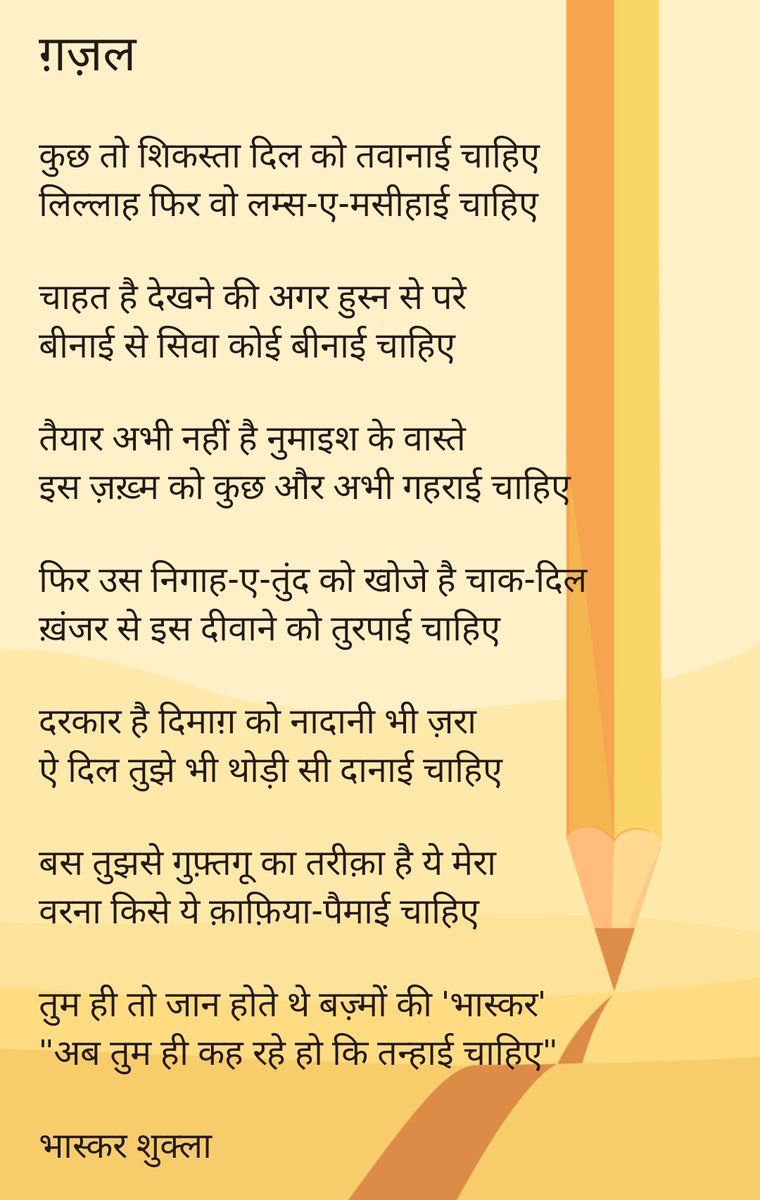 ग़ज़ल
कुछ तो शिकस्ता दिल को तवानाई चाहिए
लिल्लाह फिर वो लम्स-ए-मसीहाई चाहिए
चाहत है देखने की अगर हुस्न से परे
बीनाई से सिवा कोई बीनाई चाहिए
तैयार अभी नहीं है नुमाइश के वास्ते
इस ज़ख़्म को कुछ और अभी गहराई चाहिए
फिर उस निगाह-ए-तुंद को खोजे है चाक-दिल
ख़ंजर से इस दीवाने को तुरपाई चाहिए
दरकार है दिमाग़ को नादानी भी ज़रा
ऐ दिल तुझे भी थोड़ी सी दानाई चाहिए
बस तुझसे गुफ़्तगू का तरीक़ा है ये मेरा
वरना किसे ये क़ाफ़िया-पैमाई चाहिए
तुम ही तो जान होते थे बज़्मों की 'भास्कर'
"अब तुम ही कह रहे हो कि तन्हाई चाहिए"
भास्कर शुक्ला